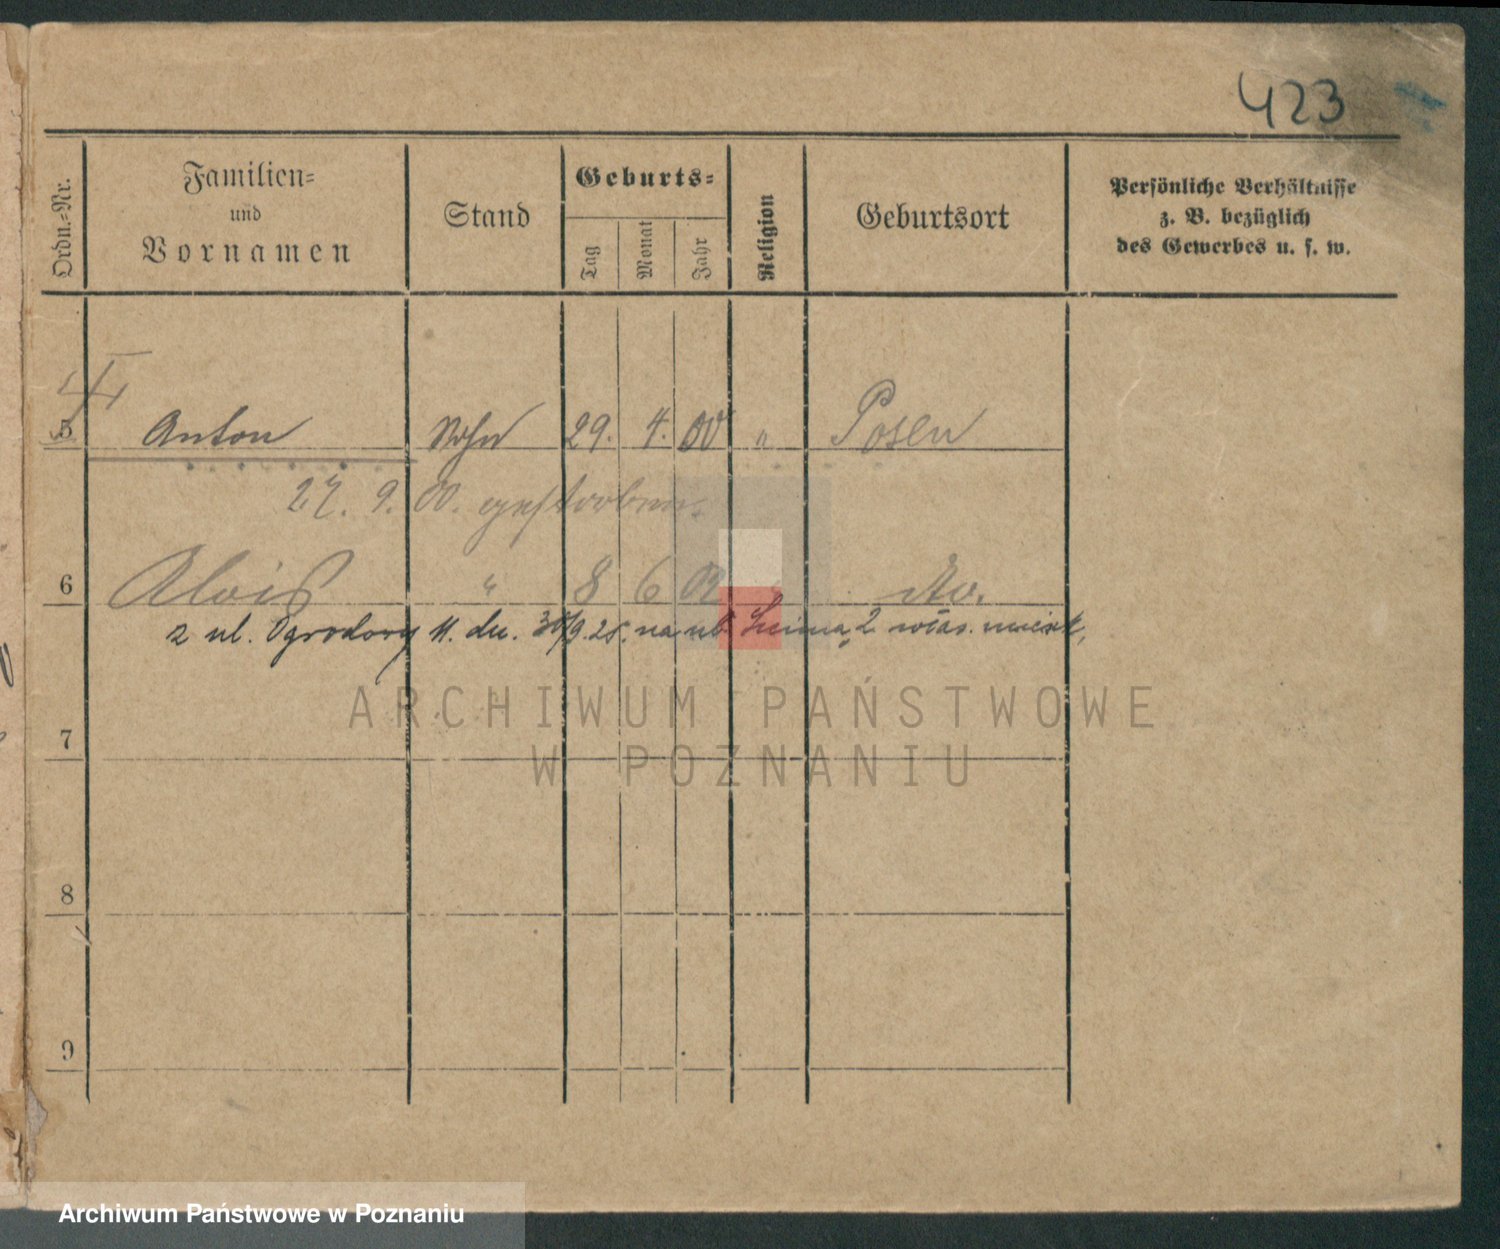 423
Ordn.-Nr.
Familien-
und
Vornamen
Stand
Geburts-
Tag
Monat
Jahr
Religion
Geburtsort
Persönliche Verhältnisse
z. B. bezüglich
des Gewerbes u. s. w.
5 Anton Sohn 29. 4. 00 " Posen
27. 9. 00. gestorben.
6 Alois " 8 6 02 do.
z ul. Ogrodowy 11. dn. 30/9.25. na ul. 2 włas. mieszk,
7
8
9
ARCHIWUM PAŃSTWOWE
W POZNANIU
Archiwum Państwowe w Poznaniu